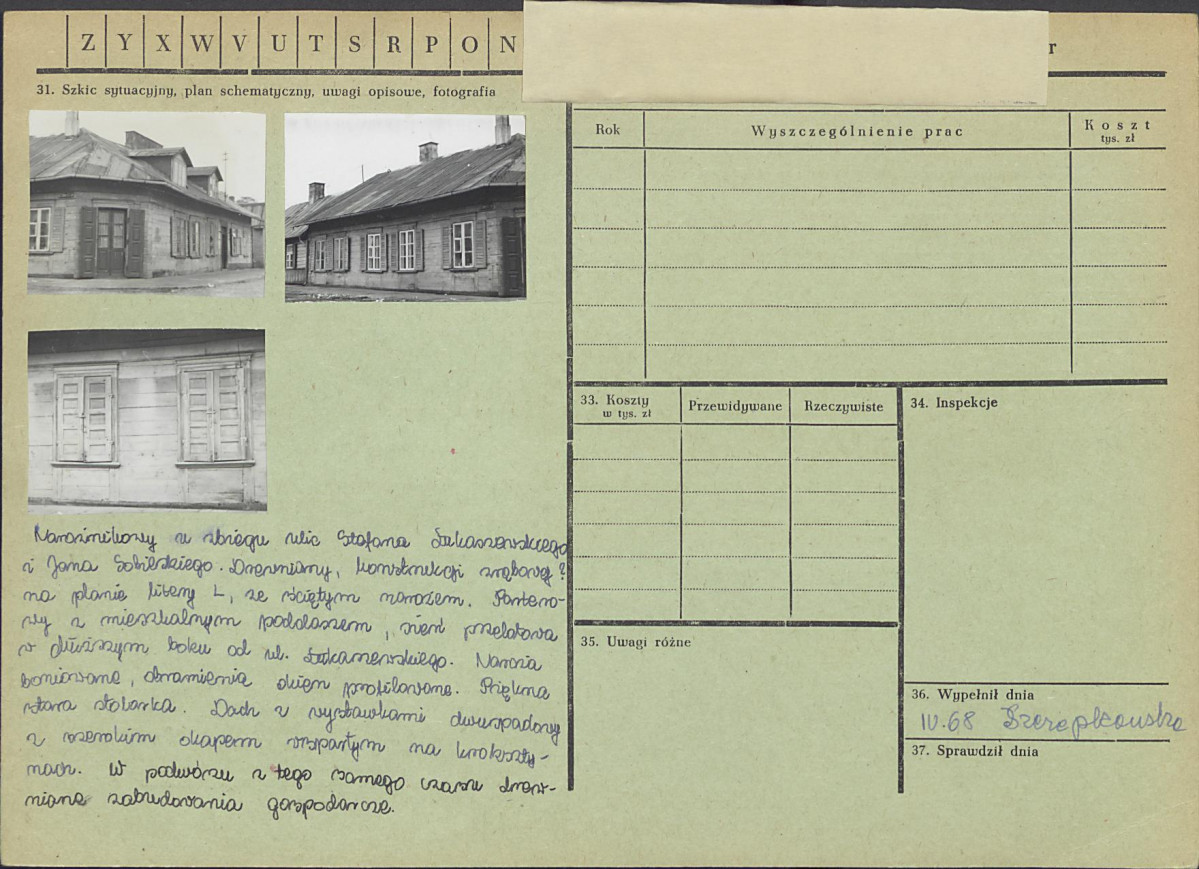 Z Y X W V U T S R P O N
r
31. Szkic sytuacyjny, plan schematyczny, uwagi opisowe, fotografia
Narożnikowy u zbiegu ulic Stefana Łukaszewskiego
i Jana Sobieskiego. Drewniany, konstrukcji zrębowej?
na planie litery L, ze ściętym narożem. Partero-
wy z mieszkalnym poddaszem, sień przelotowa
w dłuższym boku od ul. Łukaszewskiego. Naroża
boniowane, obramienia okien profilowane. Piękna
stara stolarka. Dach z wystawkami dwuspadowy
z szerokim okapem wspartym na kroksztý-
nach. W podwórzu z tego samego czasu drew-
niane zabudowania gospodarcze.
Rok Wyszczególnienie prac Koszt
tys. zł
33. Koszty
w tys. zł
Przewidywane Rzeczywiste
34. Inspekcje
35. Uwagi różne
36. Wypełnił dnia
IV.68 Szczepkowska
37. Sprawdził dnia